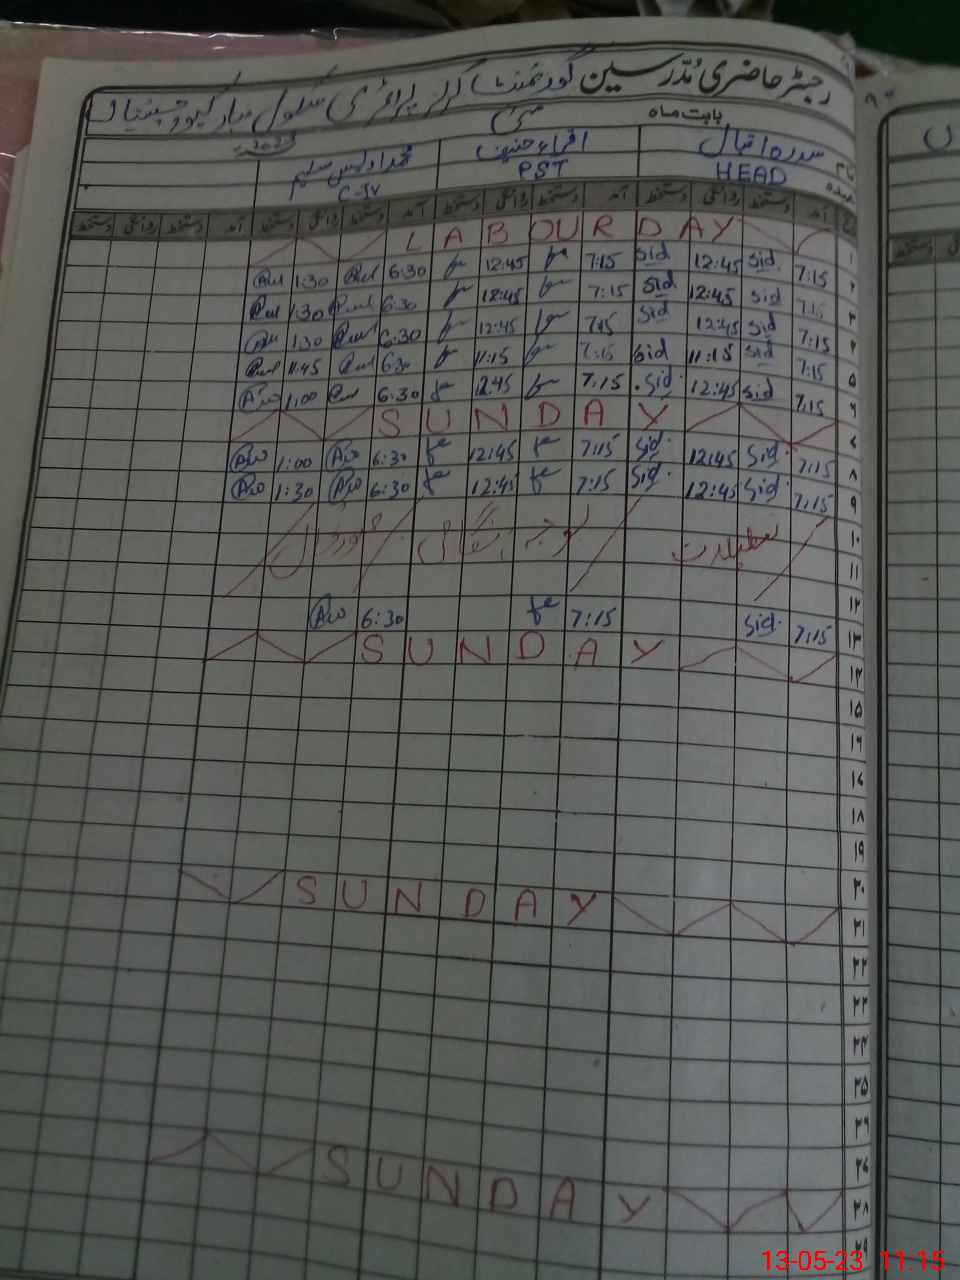 رجسٹر حاضری مُدّرسین گورنمنٹ گرلز پرائمری سکول
بابت ماہ مئی 2023
نام سدرہ اقبال اقراء حنیف محمد اویس سلیم
عہدہ HEAD PST C-IV
آمد دستخط روانگی دستخط آمد دستخط روانگی دستخط آمد دستخط روانگی دستخط آمد دستخط روانگی دستخط
۱ LABOUR DAY
۲ 7:15 sid 12:45 sid 7:15 12:45 6:30 1:30
۳ 7:15 sid 12:45 sid 7:15 12:45 6:30 1:30
۴ 7:15 sid 12:45 sid 7:15 12:45 6:30 1:30
۵ 7:15 sid 11:15 sid 7:15 11:15 6:30 11:45
۶ 7:15 sid 12:45 sid 7:15 12:45 6:30 1:00
۷ SUNDAY
۸ 7:15 sid 12:45 sid 7:15 12:45 6:30 1:00
۹ 7:15 sid 12:45 sid 7:15 12:45 6:30 1:30
۱۰ تعطیلات بوجہ
۱۱
۱۲
۱۳ 7:15 sid 7:15 6:30
۱۴ SUNDAY
۱۵
۱۶
۱۷
۱۸
۱۹
۲۰
۲۱ SUNDAY
۲۲
۲۳
۲۴
۲۵
۲۶
۲۷
۲۸ SUNDAY
۲۹
13-05-23 11:15